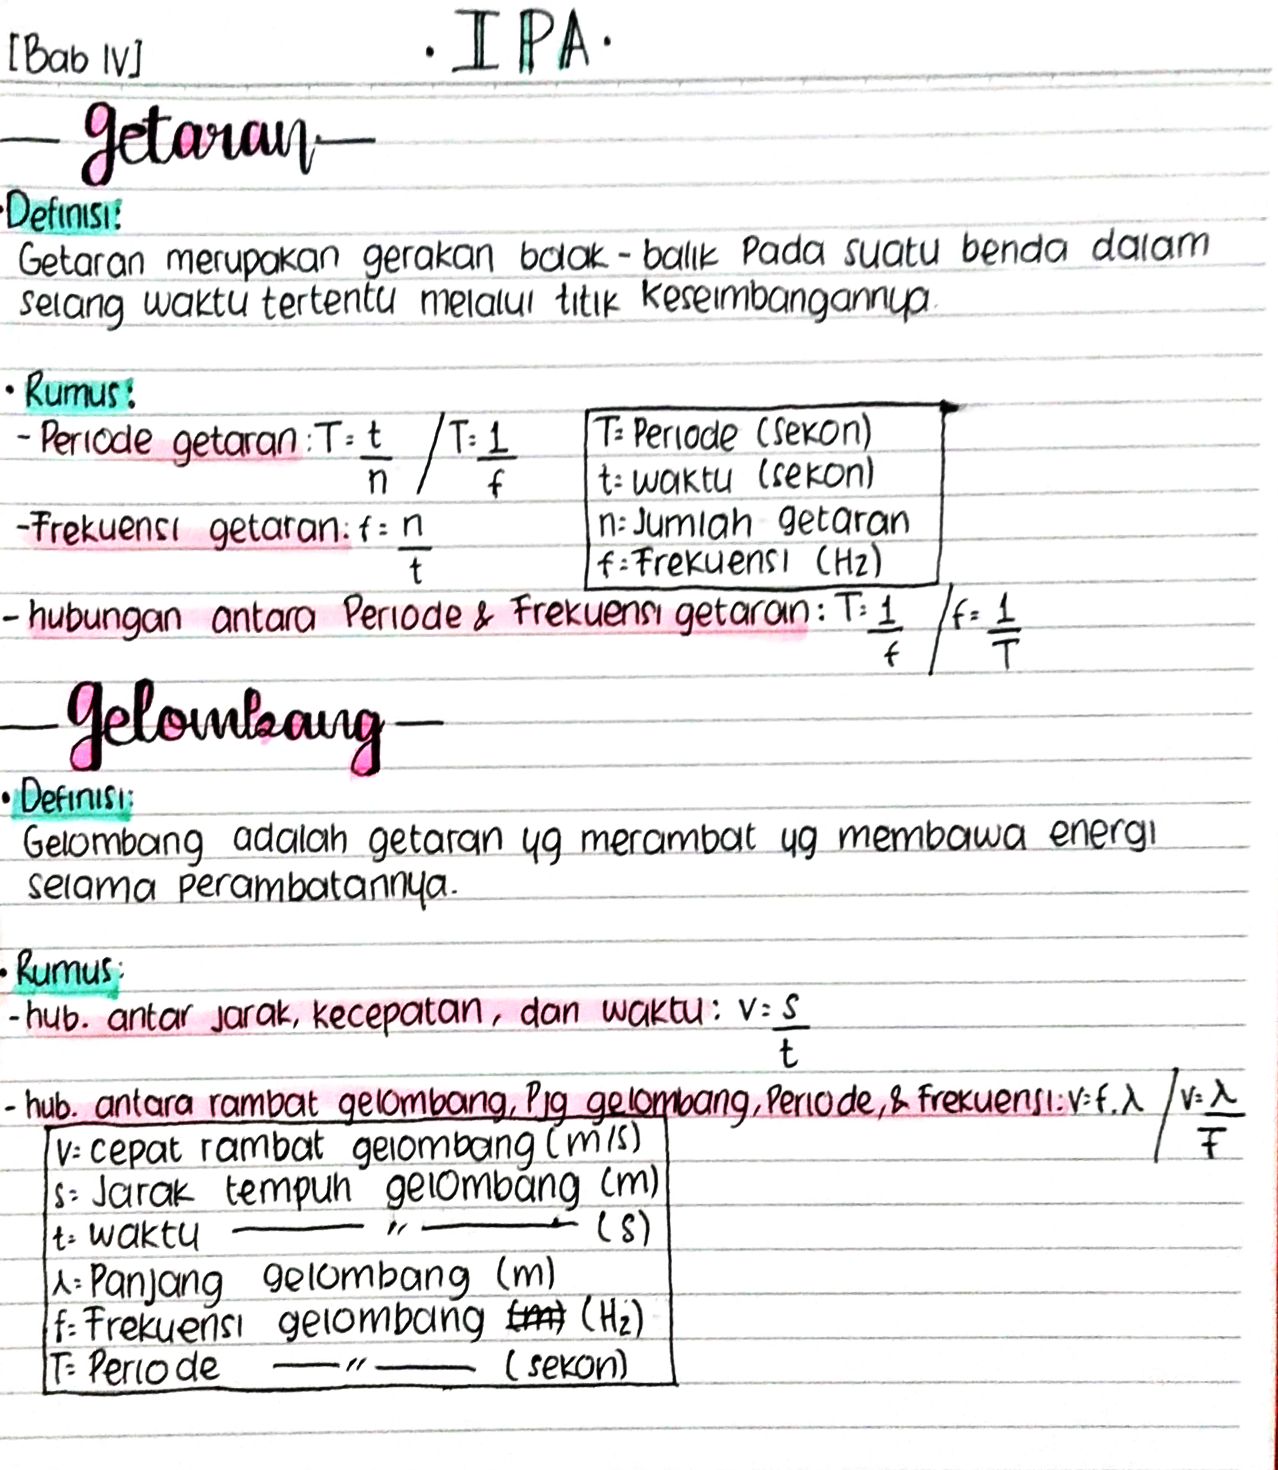 [Bab IV]
· IPA ·
— getaran —
• Definisi:
Getaran merupakan gerakan bolak - balik pada suatu benda dalam
selang waktu tertentu melalui titik keseimbangannya.
• Rumus:
- Periode getaran: T = t/n / T = 1/f
T = Periode (sekon)
t = waktu (sekon)
n = Jumlah getaran
f = Frekuensi (Hz)
- Frekuensi getaran: f = n/t
- hubungan antara Periode & Frekuensi getaran: T = 1/f / f = 1/T
— gelombang —
• Definisi:
Gelombang adalah getaran yg merambat yg membawa energi
selama perambatannya.
• Rumus:
- hub. antar jarak, kecepatan, dan waktu: v = s/t
- hub. antara rambat gelombang, Pjg gelombang, Periode, & Frekuensi: v = f.λ / v = λ/T
v = cepat rambat gelombang (m/s)
s = Jarak tempuh gelombang (m)
t = waktu —— " —— (s)
λ = Panjang gelombang (m)
f = Frekuensi gelombang (m) (Hz)
T = Periode —— " —— (sekon)